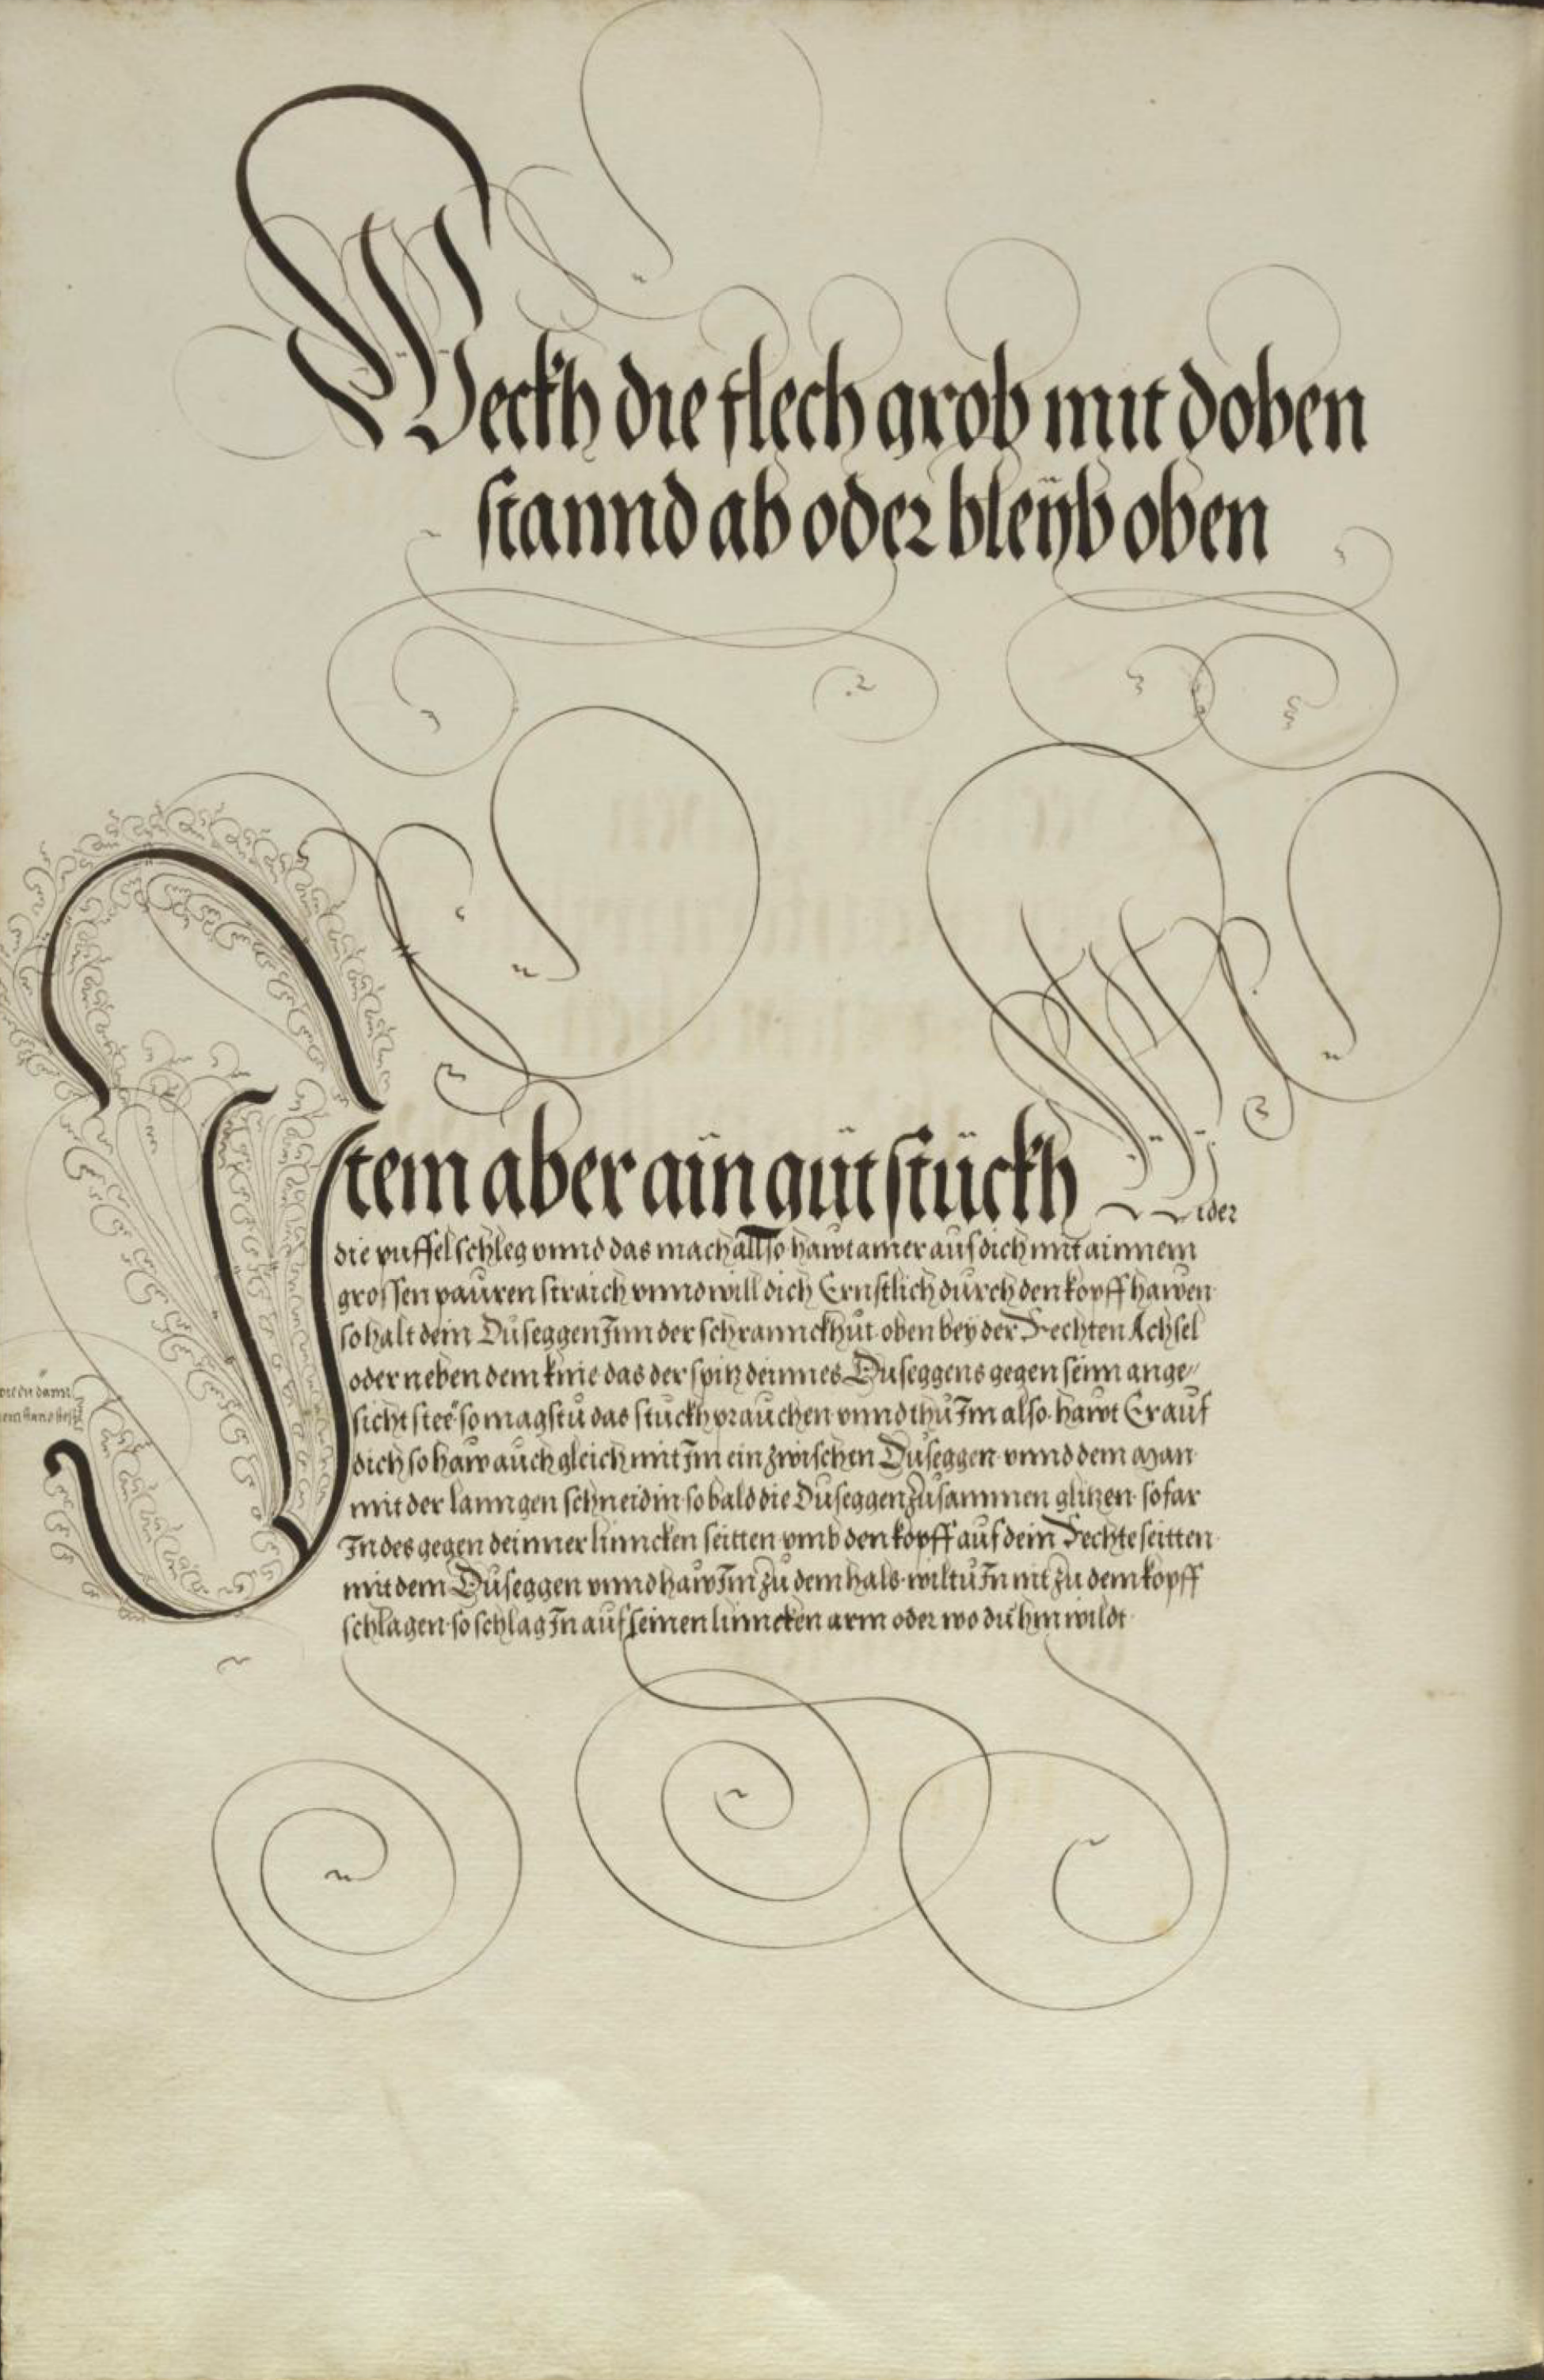 Weckh die flech grob mit doben
stannd ab oder bleÿb oben
Item aber ain güt stückh Wider
die puffel schleg vnnd das mach allso hawt ainer auf dich mit ainnem
grossen pauren straich vnnd will dich Ernstlich durch den kopff hawen
so halt dein Duseggen Inn der schrannckhut oben bey der Rechten Achsel
oder neben dem knie das der spitz deinnes Duseggens gegen seinn ange〃
sicht stee so magstu das stuckh prauchen vnnd thu Im also hawt Er auf
dich so haw auch gleich mit Im ein zwischen Duseggen vnnd dem man
mit der lanngen schneid in so bald die Duseggen zusammen glitzen so far
Indes gegen deinner linncken seitten vmb den kopff auf dein Rechte seitten
mit dem Duseggen vnnd haw Im zu dem hals wiltu In nit zu dem kopff
schlagen so schlag In auf seinen linncken arm oder wo du hin wildt